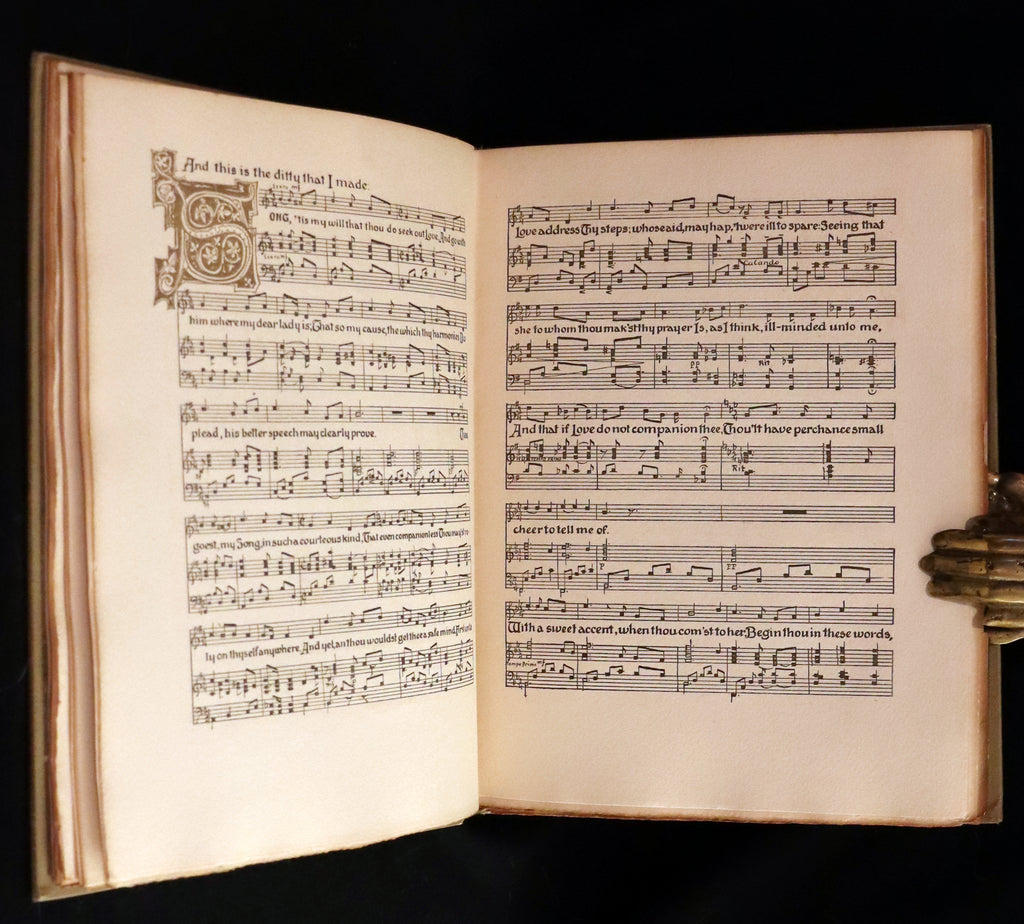 And this is the ditty that I made:
Lento mf
SONG, 'tis my will that thou do seek out Love, And go with
Lento
him where my dear lady is; That so my cause, the which thy harmonies Do
plead, his better speech may clearly prove. Thou
goest, my Song, in such a courteous kind, That even companionless Thou may'st re
ly on thyself anywhere. And yet, an thou wouldst get thee a safe mind, First unto
Love address Thy steps; whose aid, mayhap, 'twere ill to spare: Seeing that
Calando
she to whom thou mak'st thy prayer Is, as I think, ill-minded unto me,
pp Rit
And that if Love do not companion thee, Thou'lt have perchance small
Rit
cheer to tell me of.
P PP
With a sweet accent, when thou com'st to her, Begin thou in these words,
Tempo Primo mf